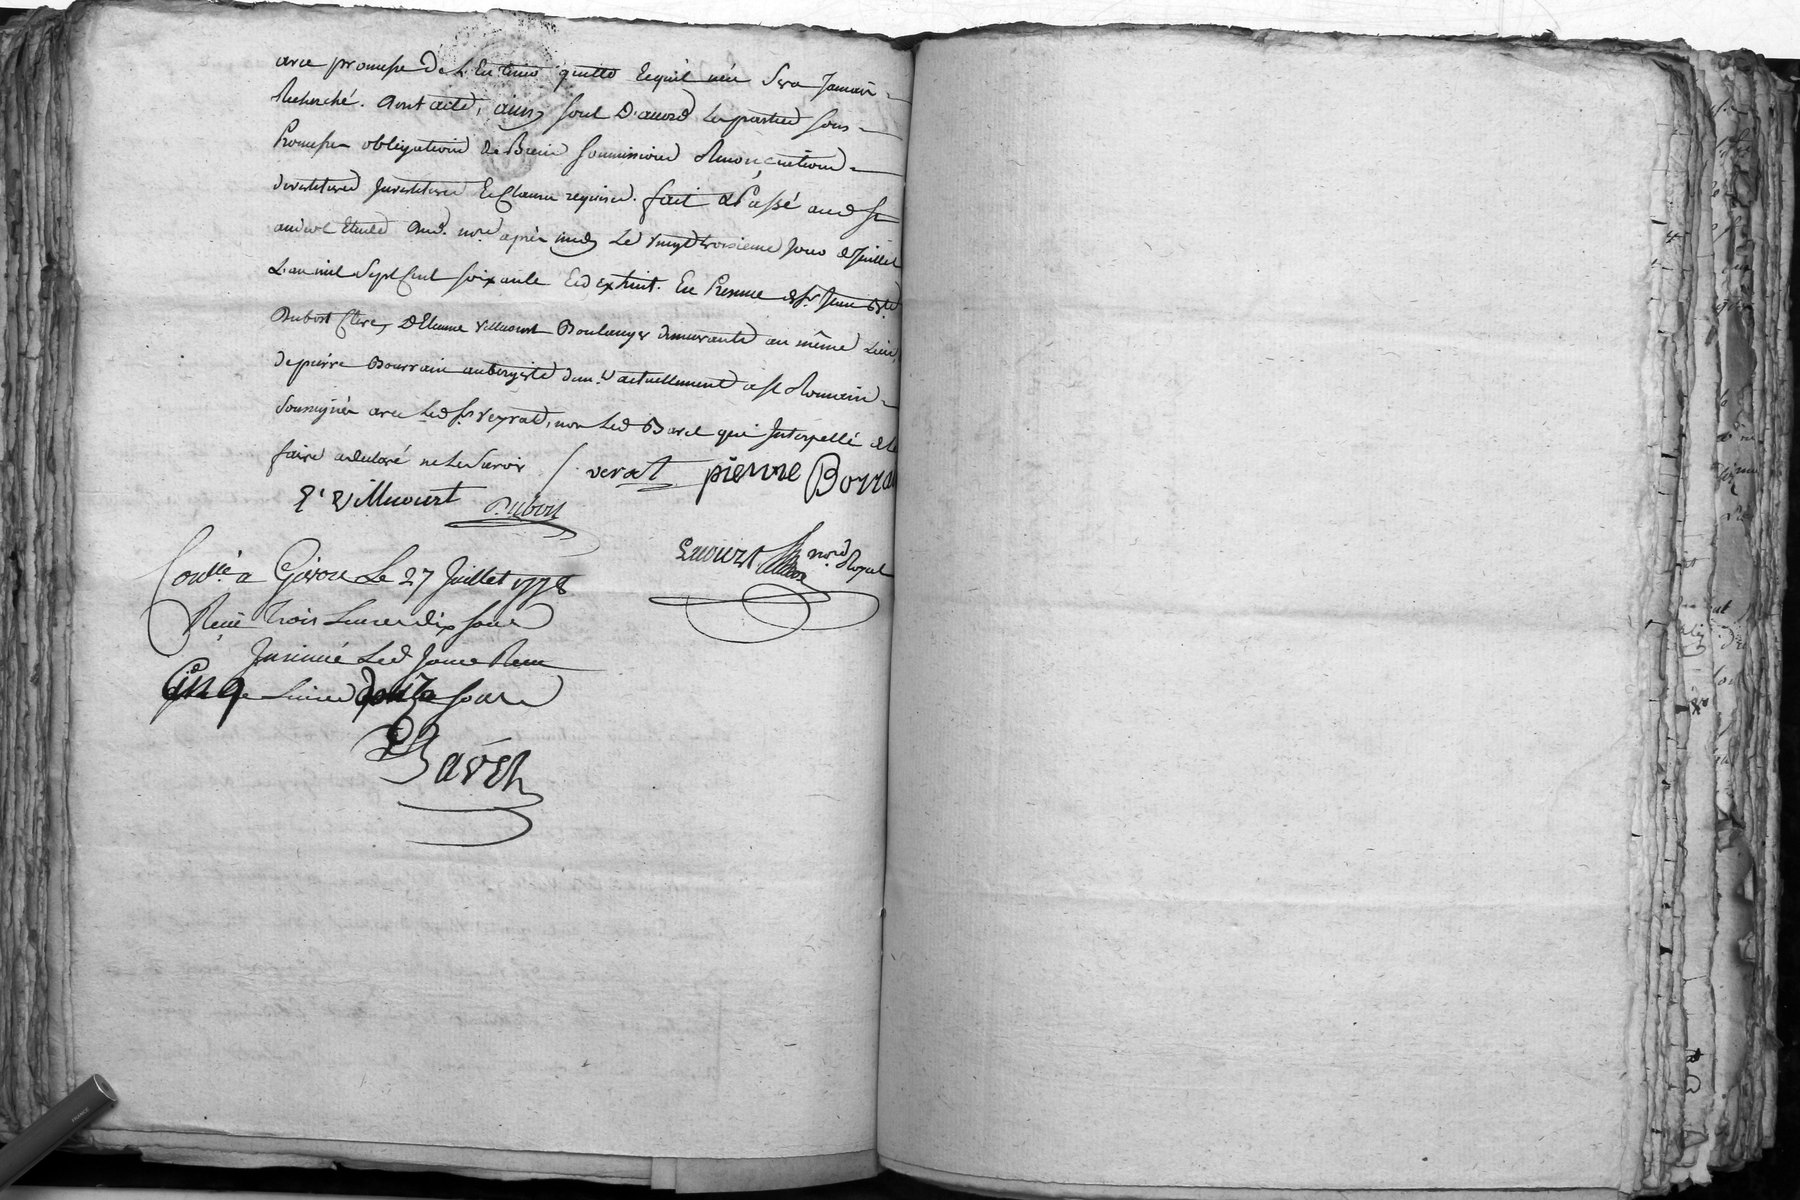 avec promesse de l'en tenir quitte et qu'il n'en sera jamais
Recherché. dont acte, ainsy sont d'accord les parties sous
Promesse obligations de Biens soumissions Renonçiations
devestiture Investiture et Clauses requises. fait et Passé aud St
étude dud. nore après midy le vingt troisieme jour de juillet
L'an mil sept cent soixante et dix huit. En Presence de Sr Jean Bte
Dubost Clerc, d'Etienne Villecourt Boulanger demeurants au même Lieu,
de pierre Bourrain aubergiste demt actuellement a St Romain
soussignés avec led Sr Veyrat, non led Barel qui Interpellé de le
faire a declaré ne le savoir /. verat pierre Borra
E Villicourt Dubost
nore Royal
Conllé a Givors Le 27 Juillet 1778
Reçu trois Livres dix sous
Insinué Led Jour Reçu
Cinq Livres douze sous